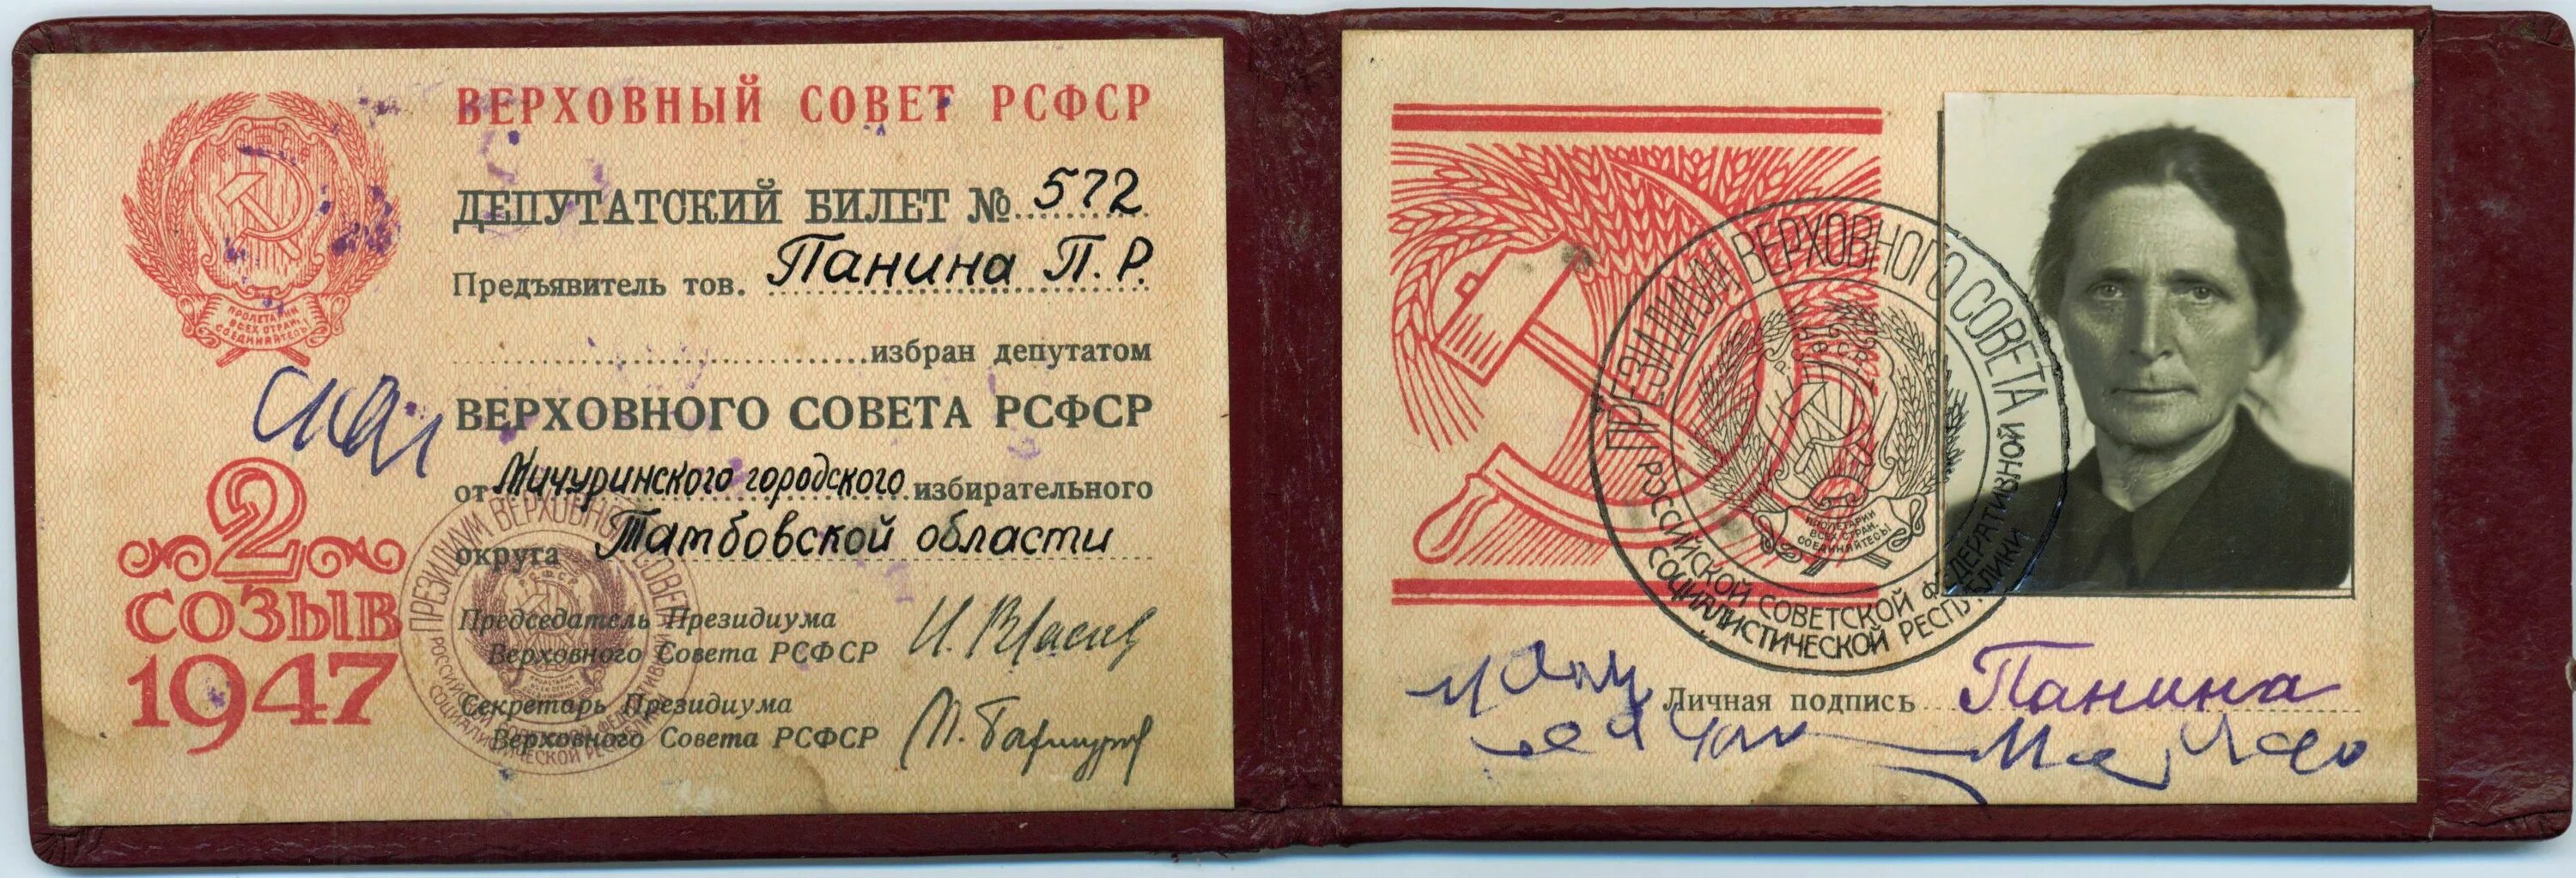 ВЕРХОВНЫЙ СОВЕТ РСФСР
РСФСР
ПРОЛЕТАРИИ
ВСЕХ СТРАН,
СОЕДИНЯЙТЕСЬ!
ДЕПУТАТСКИЙ БИЛЕТ № 572
Предъявитель тов. Панина П.Р.
избран депутатом
ВЕРХОВНОГО СОВЕТА РСФСР
от Мичуринского городского избирательного
округа Тамбовской области
2
СОЗЫВ
1947
Председатель Президиума
Верховного Совета РСФСР И. Власов
Секретарь Президиума
Верховного Совета РСФСР П. Бахмуров
ПРЕЗИДИУМ ВЕРХОВНОГО СОВЕТА
РОССИЙСКОЙ СОВЕТСКОЙ ФЕДЕРАТИВНОЙ
СОЦИАЛИСТИЧЕСКОЙ РЕСПУБЛИКИ
РСФСР
ПРЕЗИДИУМ ВЕРХОВНОГО СОВЕТА
РОССИЙСКОЙ СОВЕТСКОЙ ФЕДЕРАТИВНОЙ
СОЦИАЛИСТИЧЕСКОЙ РЕСПУБЛИКИ
РСФСР
ПРОЛЕТАРИИ
ВСЕХ СТРАН,
СОЕДИНЯЙТЕСЬ!
Личная подпись Панина